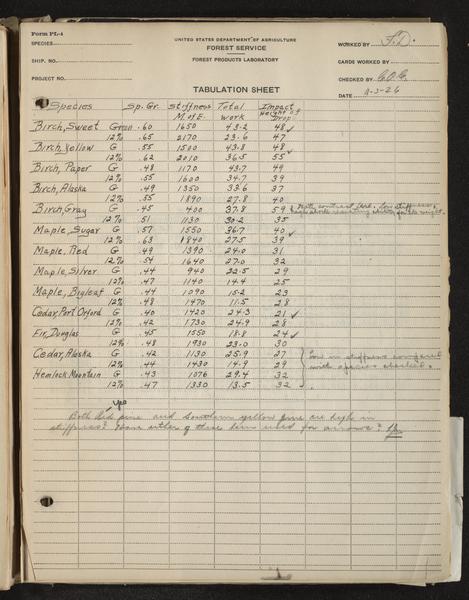 Form PL-4
UNITED STATES DEPARTMENT OF AGRICULTURE
FOREST SERVICE
FOREST PRODUCTS LABORATORY
SPECIES
SHIP. NO.
PROJECT NO.
WORKED BY F.D.
CARDS WORKED BY
CHECKED BY
DATE 11-3-26
TABULATION SHEET
Species Sp. Gr. Stiffness M. of E. Total work Impact Height of Drop
Birch, Sweet Green .60 1650 43.2 48 ✓
12% .65 2170 23.6 47
Birch, Yellow G .55 1500 43.8 48
12% .62 2010 36.5 55 ✓
Birch, Paper G .48 1170 43.7 49
12% .55 1600 34.7 39
Birch, Alaska G .49 1350 33.6 37
12% .55 1890 27.8 40
Birch, Gray G .45 400 37.8 59
12% .51 1130 30.2 35
Maple, Sugar G .57 1550 36.7 40 ✓
12% .63 1840 27.5 39
Maple, Red G .49 1390 24.0 31
12% .54 1640 27.0 32
Maple, Silver G .44 940 22.5 29
12% .47 1140 14.4 25
Maple, Bigleaf G .44 1090 15.2 23
12% .48 1470 11.5 28
Cedar, Port Orford G .40 1420 24.3 21 ✓
12% .42 1730 24.9 28
Fir, Douglas G .45 1550 18.8 24 ✓
12% .48 1930 23.0 30
Cedar, Alaska G .42 1130 25.9 27
12% .44 1430 14.9 29
Hemlock, Mountain G .43 1076 29.4 32
12% .47 1330 13.5 32
Low in stiffness compared
with species checked.
yes
Both pine and Southern yellow pine are high in
stiffness? Have either of these been used for arrows?